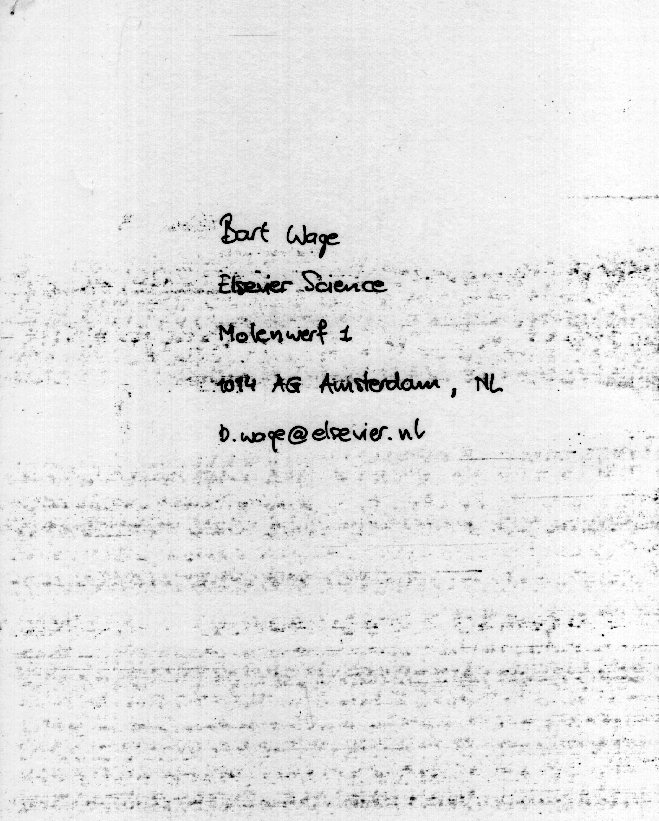 Bart Wage
Elsevier Science
Molenwerf 1
1014 AG Amsterdam, NL
b.wage@elsevier.nl